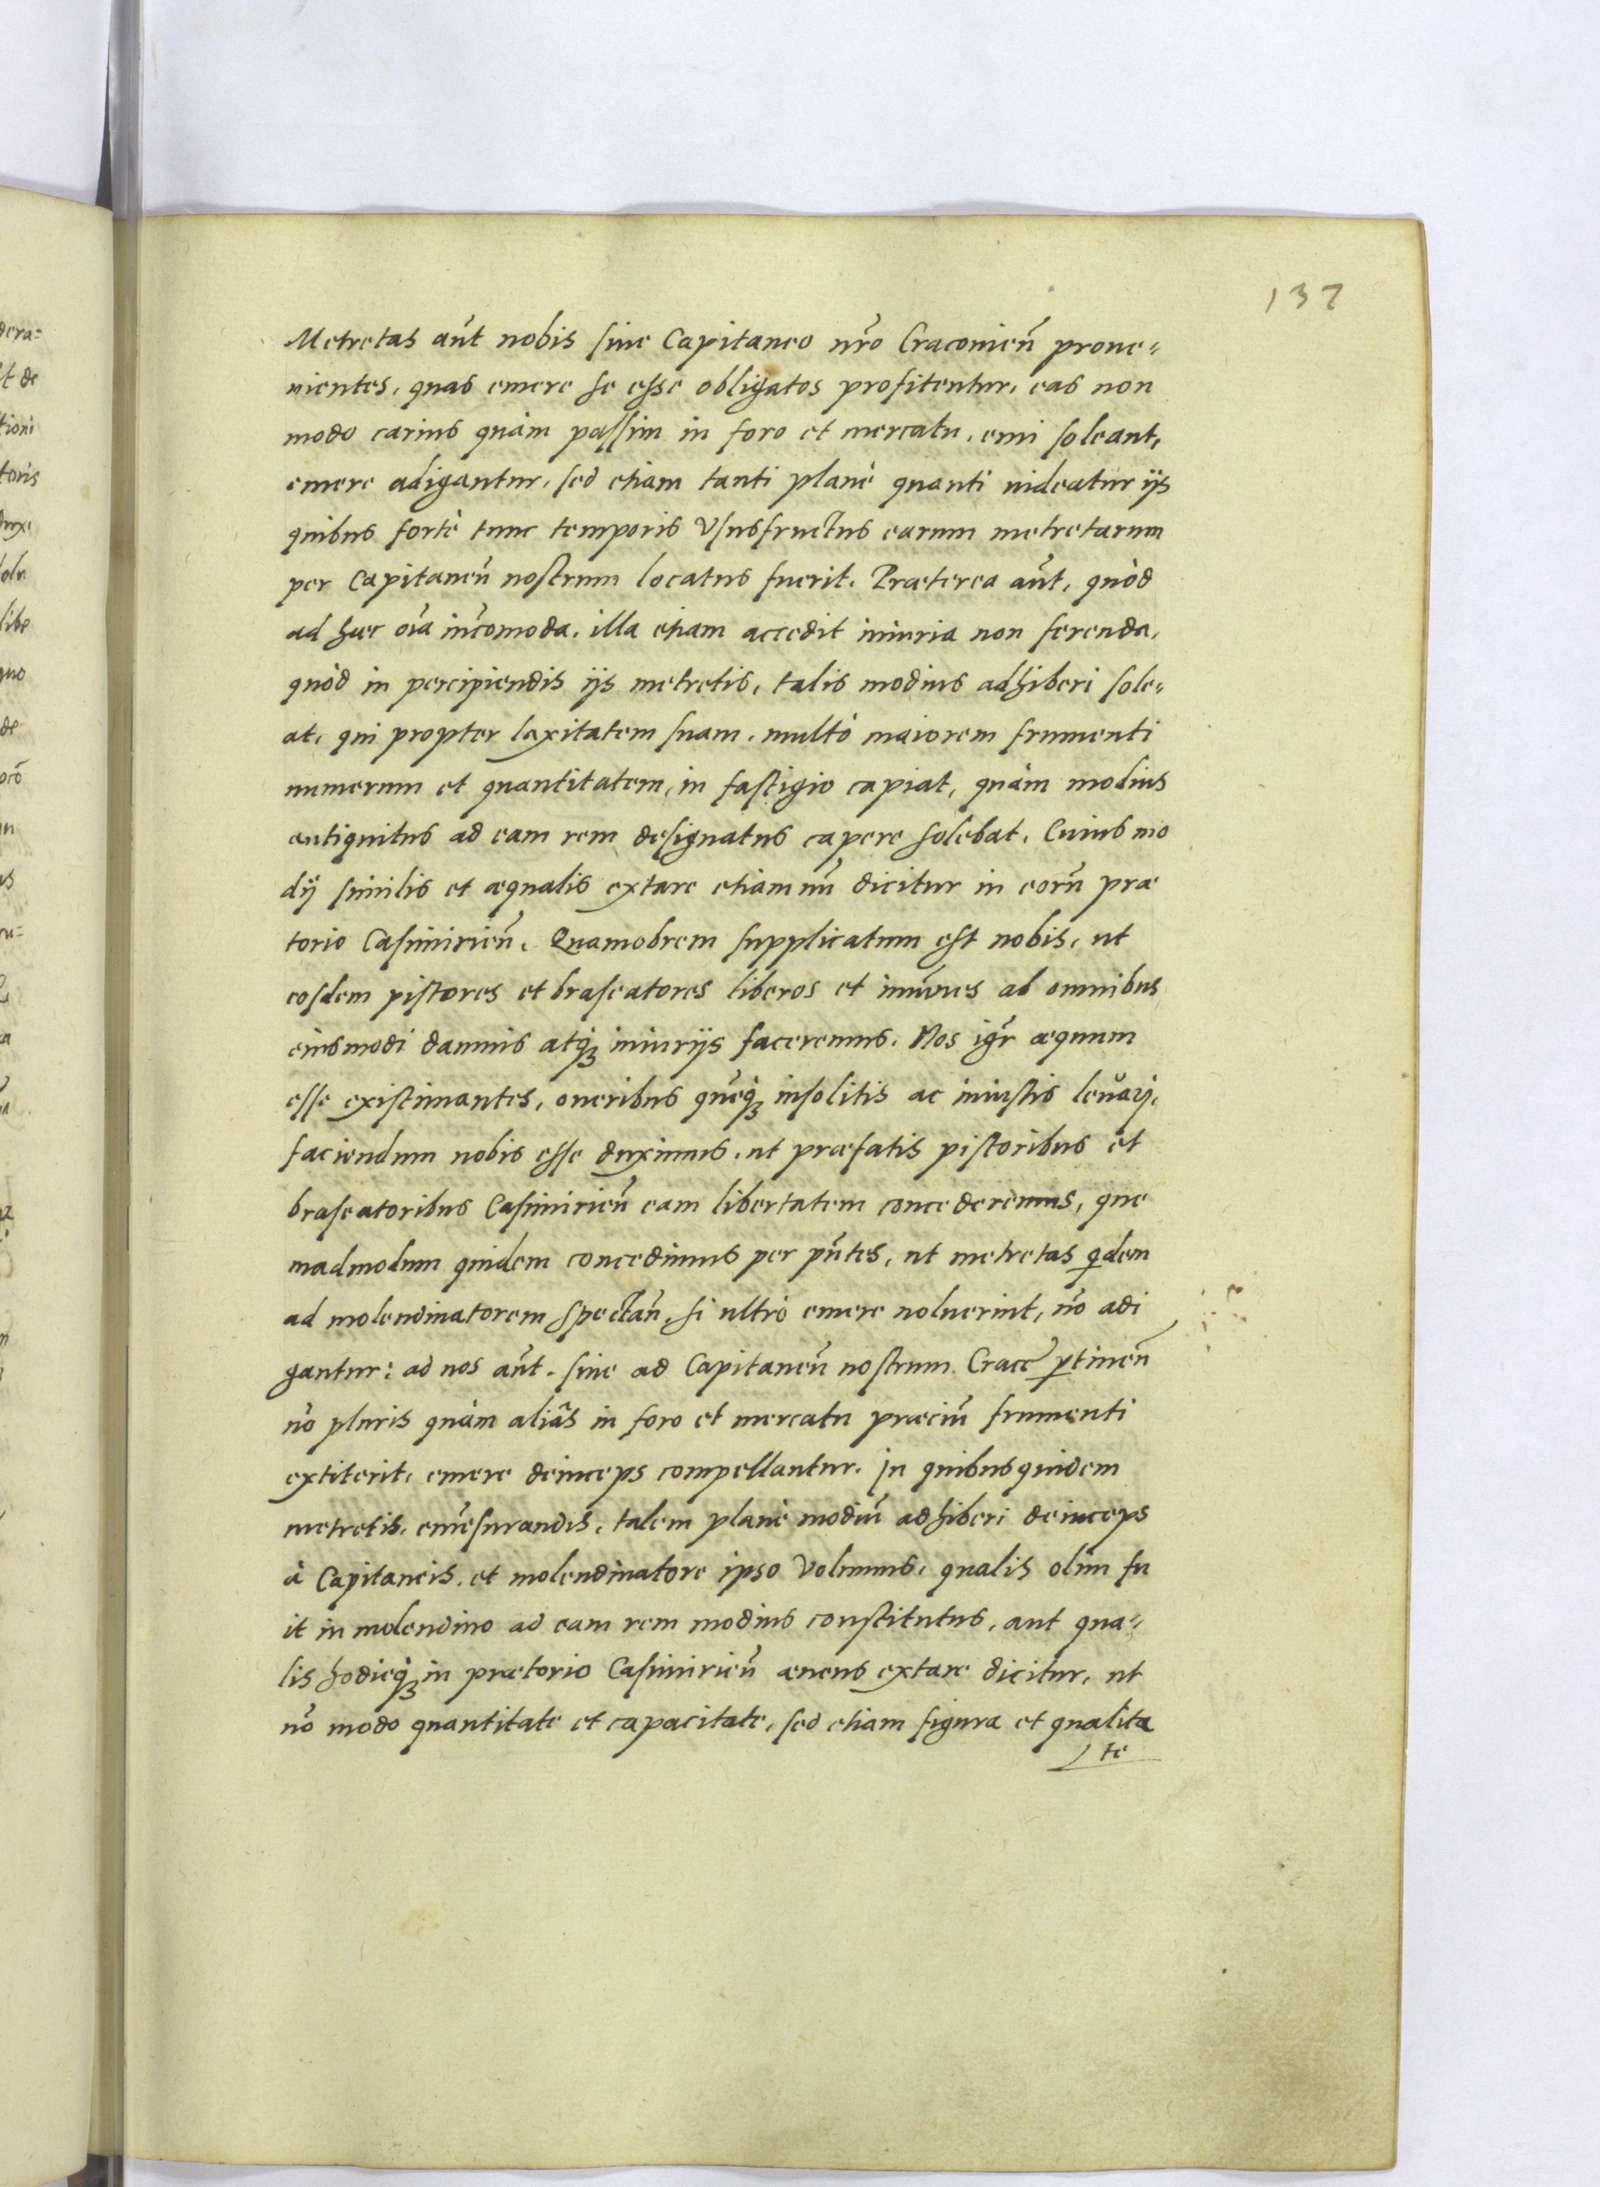 137
Metretas aūt nobis siue Capitaneo nr̄o Cracouień proue=
nientes, quas emere se esse obligatos profitentur, eas non
modo carius quàm passim in foro et mercatu, emi soleant,
emere adigantur, sed etiam tanti planè quanti uideatur ijs
quibus fortè tunc temporis Vsusfructus earum metretarum
per Capitaneū nostrum locatus fuerit. Præterea aūt, quòd
ad hæc oīa incōmoda, illa etiam accedit iniuria non ferenda,
quòd in percipiendis ijs metretis, talis modius adhiberi sole=
at, qui propter laxitatem suam, multò maiorem frumenti
numerum et quantitatem, in fastigio capiat, quàm modius
antiquitus ad eam rem designatus capere solebat. Cuius mo
dij similis et æqualis extare etiamnū dicitur in eorū præ
torio Casimirień. Quamobrem supplicatum est nobis, ut
eosdem pistores et braseatores liberos et imūnes ab omnibus
eiusmodi damnis atq́ꝫ iniurijs faceremus. Nos igr̄ æquum
esse existimantes, oneribus quēq́ꝫ insolitis ac iniustis leuarj,
faciendum nobis esse duximus, ut præfatis pistoribus et
braseatoribus Casimirień eam libertatem concederemus, que
madmodum quidem concedimus per pn̄tes, ut metretas qdem
ad molendinatorem spectań, si ultrò emere noluerint, nō adi
gantur: ad nos aūt, siue ad Capitaneū nostrum Cracc̄ ꝑtineń
nō pluris quàm aliâs in foro et mercatu præciū frumenti
extiterit, emere deinceps compellantur. In quibus quidem
metretis, emēsurandis, talem planè modiū adhiberi deinceps
à Capitaneis, et molendinatore ipso Volumus, qualis olim fu
it in molendino ad eam rem modius constitutus, aut qua=
lis hodieq́ꝫ in prætorio Casimirień æneus extare dicitur, ut
nō modo quantitate et capacitate, sed etiam figura et qualita
te